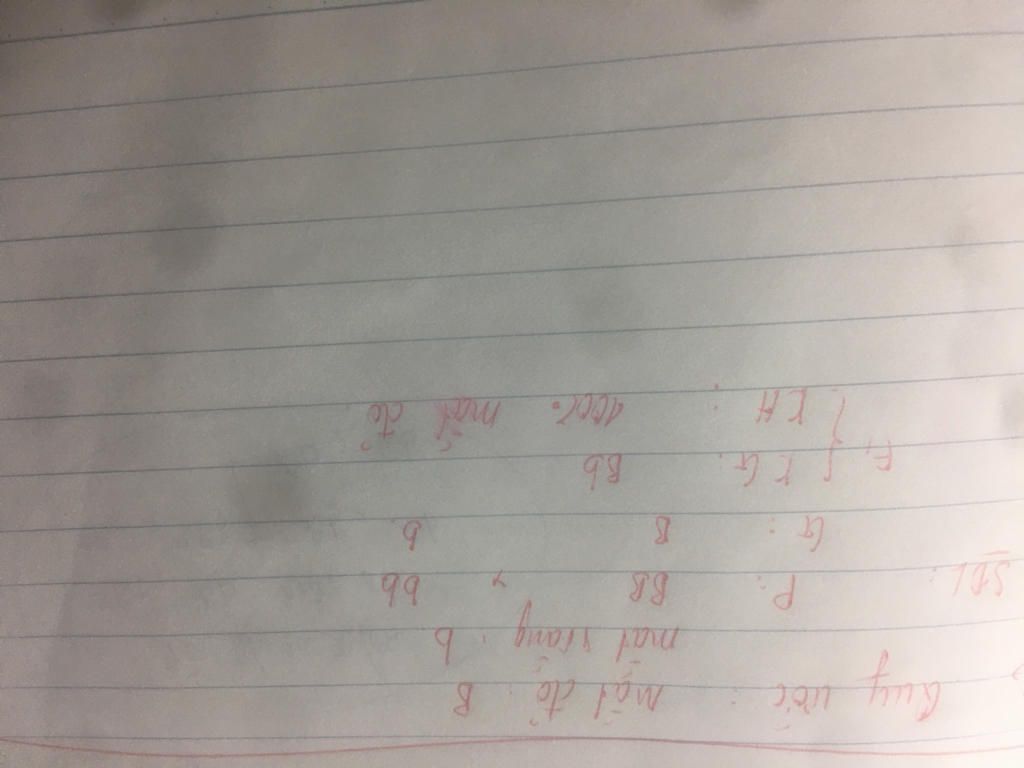 Quy ước : mắt đỏ : B
mắt trắng : b
SĐL : P : BB x bb
G : B b
F1 { KG : Bb
KH : 100% mắt đỏ